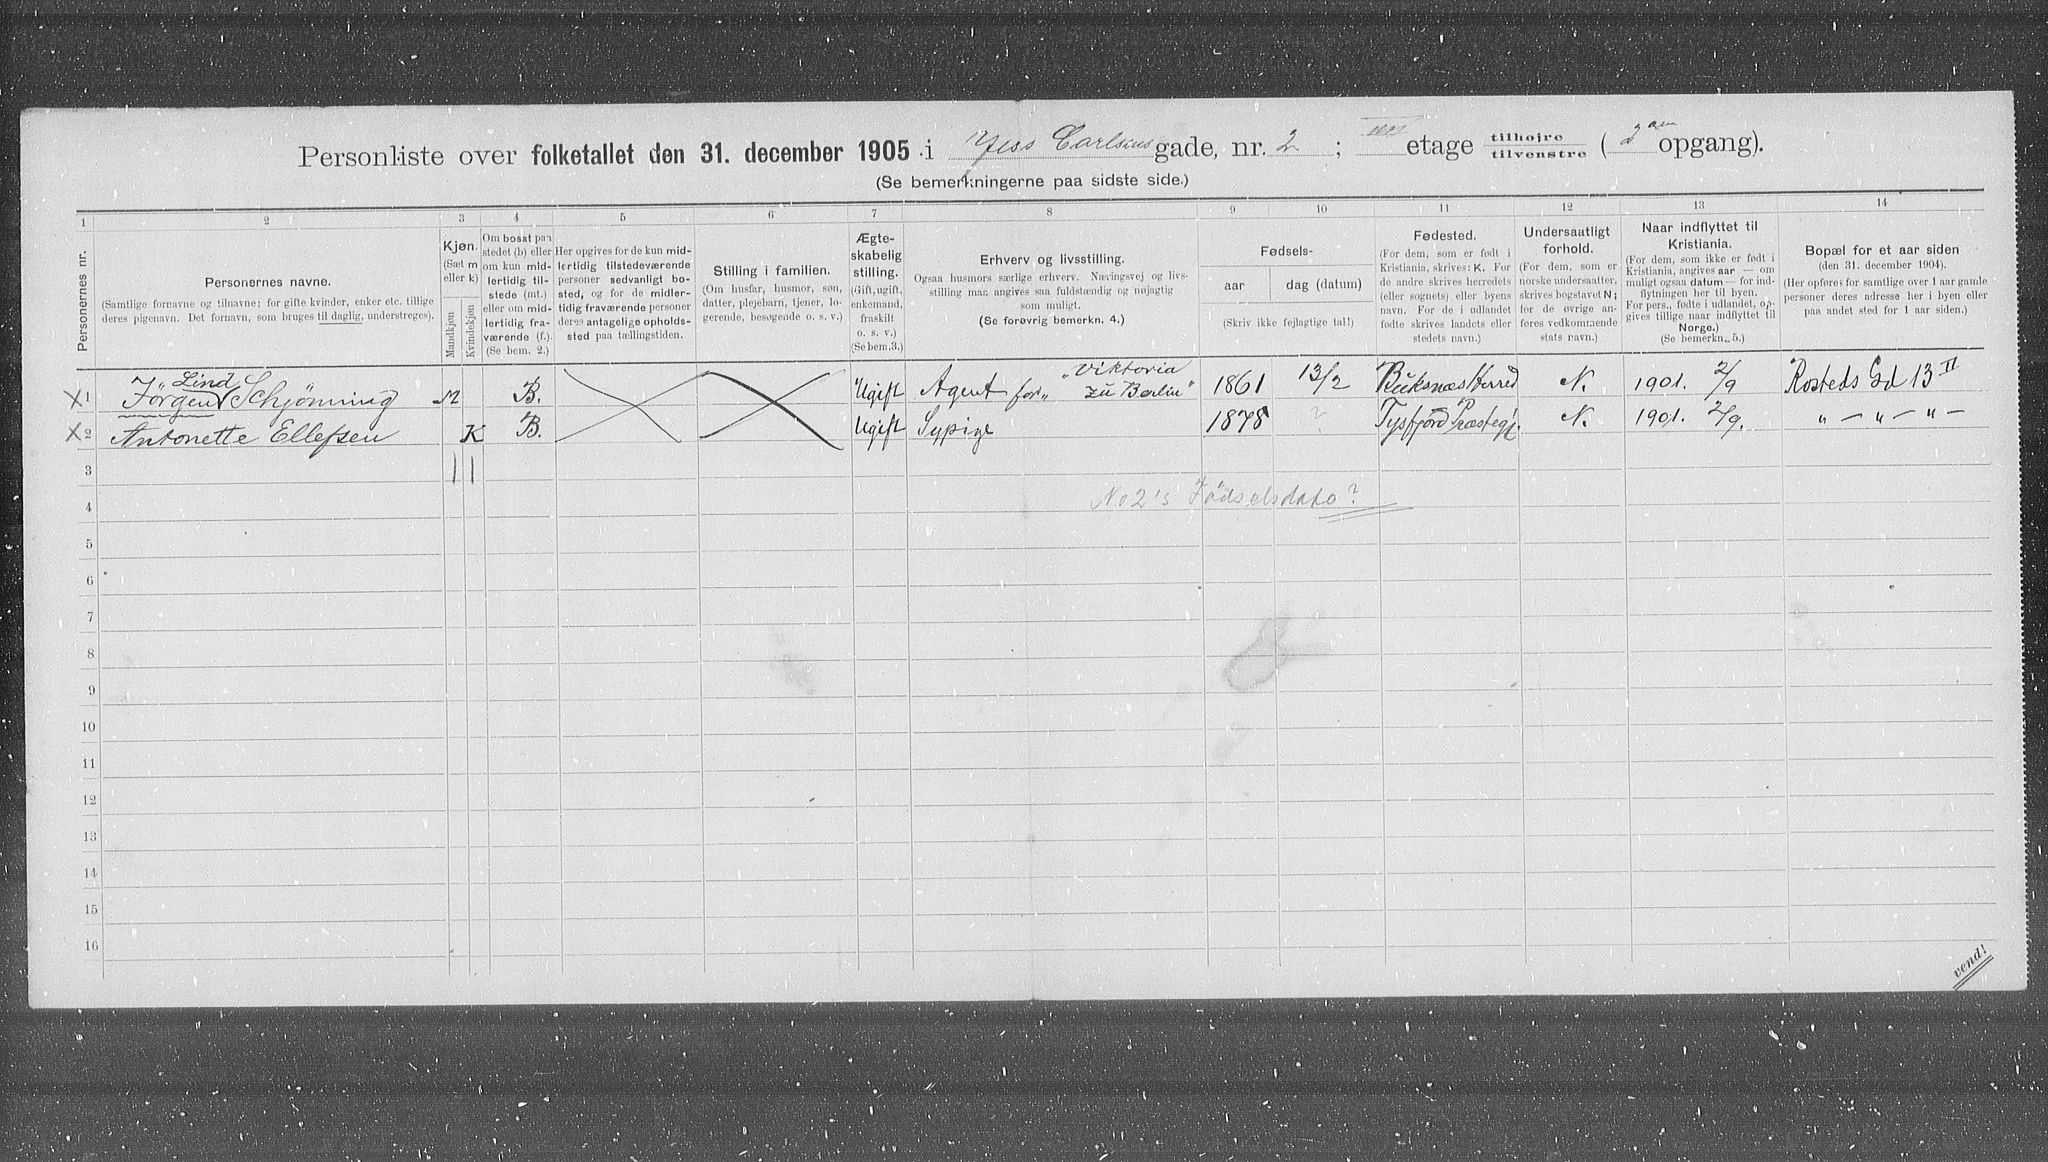 Personliste over folketallet den 31. december 1905 i Jess Carlsens gade, nr. 2 ; etage tilhøjre tilvenstre ( 2 opgang).
(Se bemerkningerne paa sidste side.)
1 2 3 4 5 6 7 8 9 10 11 12 13 14
Personernes nr.
Personernes navne.
(Samtlige fornavne og tilnavne; for gifte kvinder, enker etc. tillige
deres pigenavn. Det fornavn, som bruges til daglig, understreges).
Kjøn.
(Sæt m
eller k)
Mandkjøn
Kvindekjøn
Om bosat paa
stedet (b) eller
om kun midlertidig
tilstede (mt.)
eller om midlertidig
fraværende (f.).
(Se bem. 2.)
Her opgives for de kun midlertidig
tilstedeværende
personer sedvanligt bosted,
og for de midlertidig
fraværende personer
deres antagelige opholdssted
paa tællingstiden.
Stilling i familien.
(Om husfar, husmor, søn,
datter, plejebarn, tjener, logerende,
besøgende o. s. v.)
Ægteskabelig
stilling.
(Gift, ugift,
enkemand,
fraskilt
o. s. v.)
(Se bem. 3.)
Erhverv og livsstilling.
Ogsaa husmors særlige erhverv. Næringsvej og livsstilling
maa angives saa fuldstændig og nøjagtig
som muligt.
(Se forøvrig bemerkn. 4.)
Fødsels-
aar dag (datum)
(Skriv ikke fejlagtige tal!)
Fødested.
(For dem, som er født i
Kristiania, skrives: K. For
de andre skrives herredets
(eller sognets) eller byens
navn. For de i udlandet
fødte skrives landets eller
stedets navn.)
Undersaatligt
forhold.
(For dem, som er
norske undersaatter,
skrives bogstavet N;
for de øvrige anføres
vedkommende
stats navn.)
Naar indflyttet til
Kristiania.
(For dem, som ikke er født i
Kristiania, angives aar — om
muligt ogsaa datum — for indflytningen
her til byen.
For pers., fødte i udlandet, opgives
tillige naar indflyttet til
Norge.)
(Se bemerkn. 5.)
Bopæl for et aar siden
(den 31. december 1904).
(Her opføres for samtlige over 1 aar gamle
personer deres adresse her i byen eller
paa andet sted for 1 aar siden.)
x 1 Jörgen Lind Schjönning M B. Ugift Agent for "Viktoria zu Berlin" 1861 13/2 Buksnæs Herred N. 1901. 2/9 Rosteds Gd 13 II
x 2 Antonette Ellefsen K B. Ugift Sypige 1878 ? Tysfjord Præstegj. N. 1901. 2/9. " — " — " —
3
4 No 2's Födselsdato?
5
6
7
8
9
10
11
12
13
14
15
16
vend!